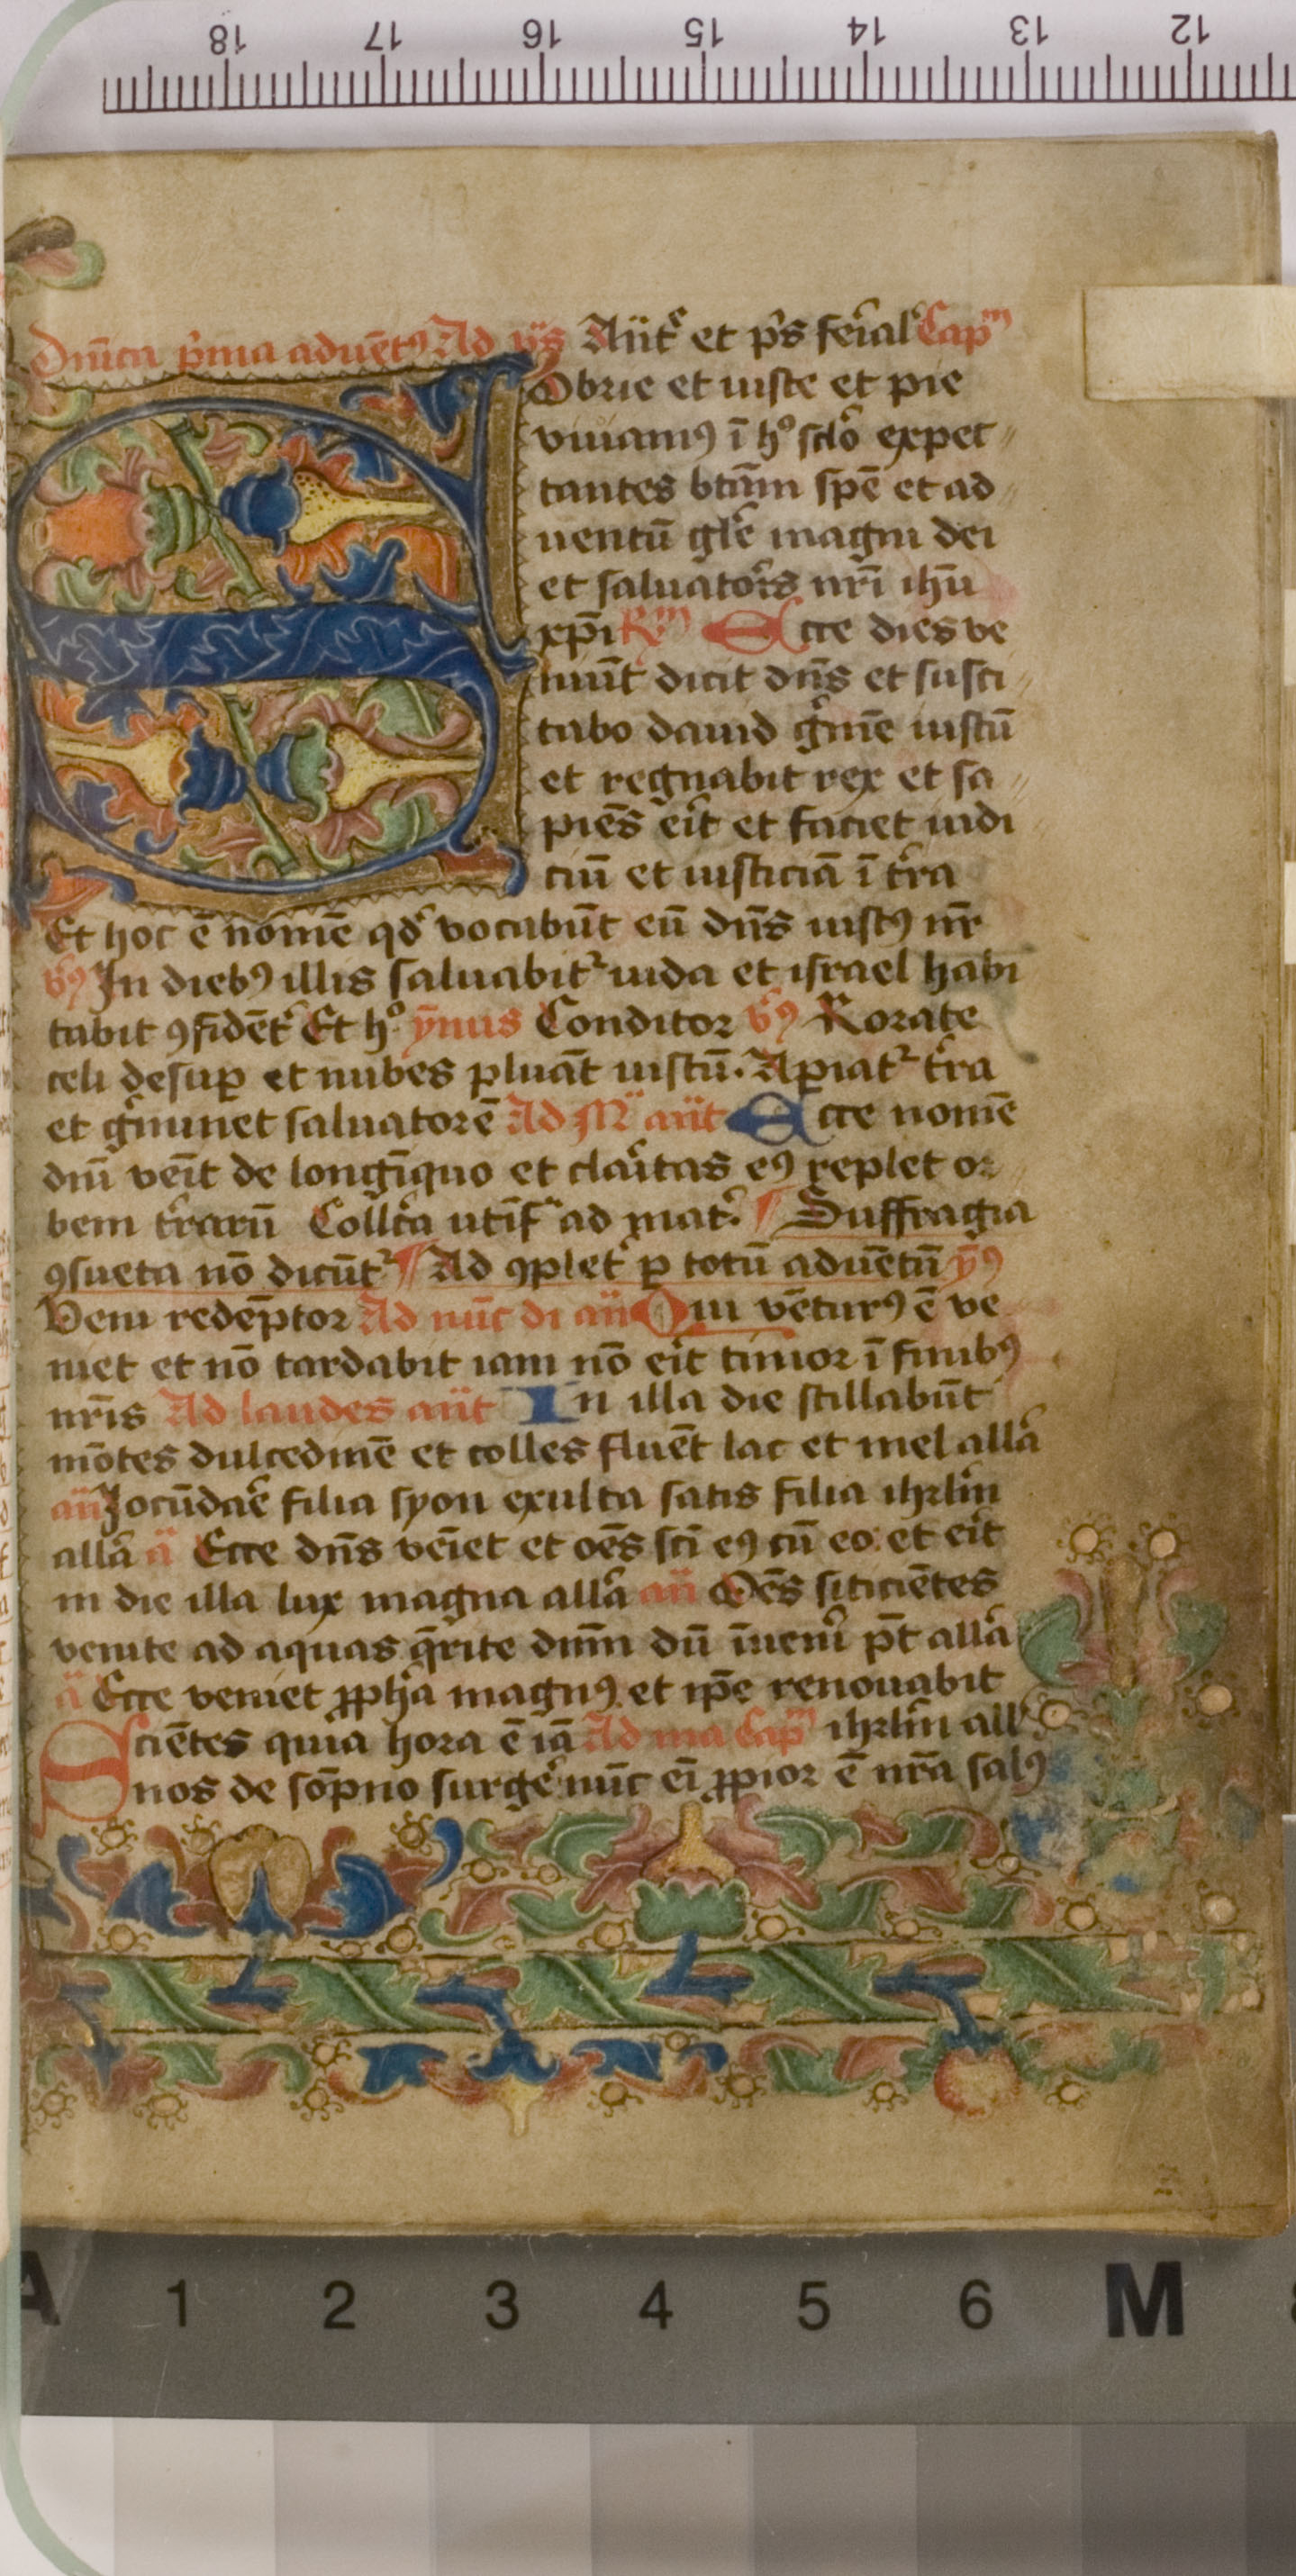 18 17 16 15 14 13 12
Dnīca p̄ma aduēt9 Ad vp̄s Añt͛ et p̄s ferial͛ Capᵐ
Sobrie et iuste et pie
viuam9 ī hº scl̄o expec
tantes btām spē et ad
uentū gl̄e magni dei
et saluatoris nr̄i ihū
xp̄i Rᵐ Ecce dies ve
niūt dicit dn̄s et susci
tabo dauid g̍mē iustū
et regnabit rex et sa
piēs er̍t et faciet iudi
ciū et iusticiā ī t̍ra
Et hoc ē nomē qd̍ vocabūt eū dn̄s iust9 nr̄
v̍9 In dieb9 illis saluabit᷑ iuda et israel habi
tabit ꝯfidēt͛ Et hº ȳnus Conditor v̍9 Rorate
celi desuꝑ et nubes pluāt iustū. Apiat᷑ t̍ra
et g̍minet saluatorē Ad Mᵃ añt Ecce nomē
dn̄i ven̄t de longīquo et clar̍tas e9 replet or
bem t̍rarū Coll̄ca ut īfᵃ ad mat͛. ¶ Suffragia
ꝯsueta nō dicūt᷑ ¶ Ad ꝯplet͛ ꝑ totū aduētū ȳ9
Veni redēptor Ad nūc di añ Qui vētur9 ē ve
niet et nō tardabit iam nō er̍t timor ī finib9
nr̄is Ad laudes añt In illa die stillabūt
mōtes dulcedinē et colles fluēt lac et mel all̄a
añ Jocūdar̄e filia syon exulta satis filia ihrl̄m
all̄a ā Ecce dn̄s veīet et oēs sc̄i e9 cū eo: et er̍t
in die illa lux magna all̄a añ Oēs sicientes
venite ad aquas q̄rite dn̄m dū īuenir̍ p̄t all̄a
ā Ecce veniet ꝓph̄a magn9 et ip̄e renouabit
Sciētes quia hora ē iā Ad ma Capᵐ ihrl̄m all̍ᵃ
nos de sōpno surge̍ nūc ei̅ ꝓpior ē nr̄a sal9
A 1 2 3 4 5 6 M